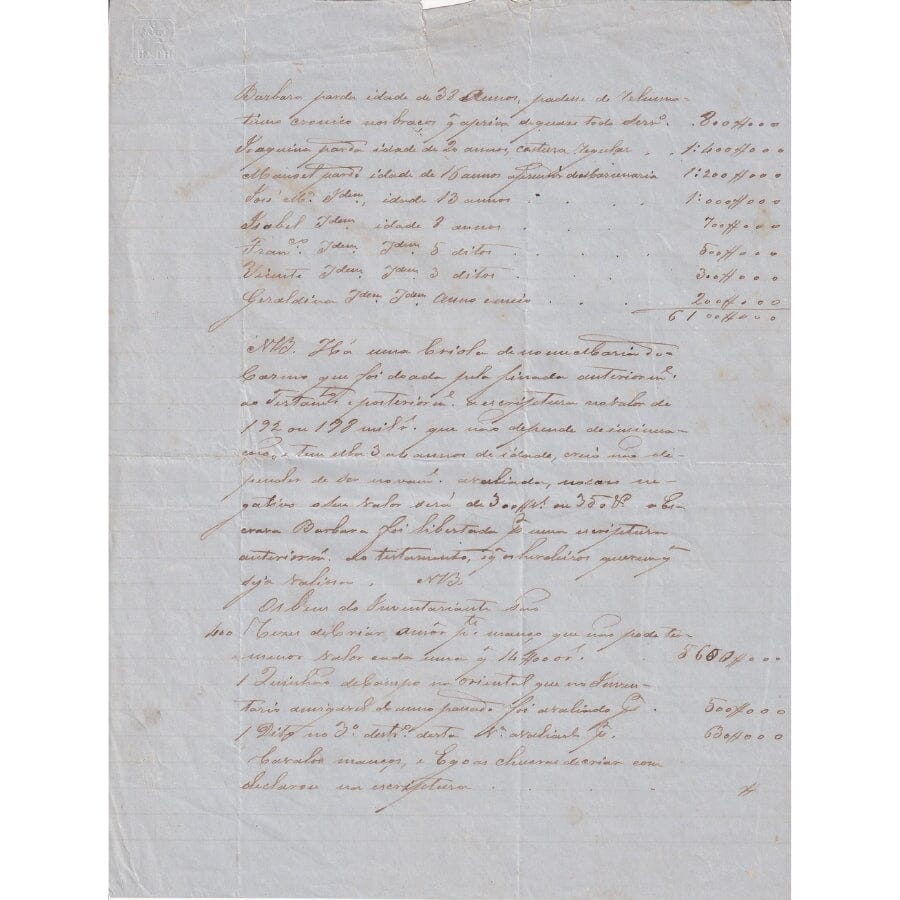 Barbara parda idade de 38 Annos, padesse de rehuma-
tismo cronico nos braços q̃ apriva de quaze todo serv.º 800$000
Joaquina parda idade de 20 annos, costura regular . . 1:400$000
Manoel pardo idade de 16 annos aprendis de Marcenaria 1:200$000
José M.ª Idem, idade 13 annos . . . 1:000$000
Isabel Idem idade 8 annos . . . . 700$000
Fran.co Idem Idem 5 ditos . . . . 500$000
Vicente Idem Idem 3 ditos . . . . 300$000
Geraldina Idem Idem Anno e meio . . . 200$000
6100$000
NB. Há uma Criola de nome Maria do
Carmo que foi doada pela finada anteriorm.e
ao Testam.to e posteriorm.e a escriptura no valor de
192 ou 198 mil r.s que não depende de insinua-
ção, e tem ella 3 a 4 annos de idade, creio não de-
pender de ser novam.e avaliada, no caso ne-
gativo o seu valor será de 300$ ou 350$ a Es-
crava Barbara foi libertada p.r uma escriptura
anteriorm.e ao testamento, se os herdeiros querem q̃
seja valiosa. NB.
Os bens do Inventariante são
400 Rezes de Criar, a mor p.te manço que não pode ter
menor valor cada uma q̃ 14$000 r.s . 5600$000
1 Quinhão de Campo no oriental que no Inven-
tario amigavel do anno passado foi avaliado p.r . 500$000
1 Dito no 3º destr.º desta V.ª avaliado p.r . 630$000
Cavalos manços, e Egoas chucras de criar como
declarou na escriptura . . . . $